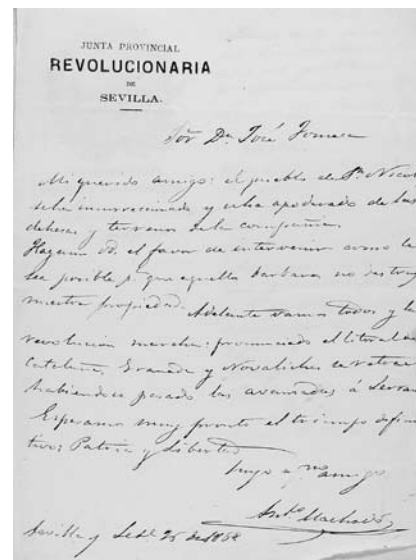 JUNTA PROVINCIAL
REVOLUCIONARIA
DE
SEVILLA.
Sor Dn José
Mi querido amigo: el pueblo de Sn Nicol
se ha insurreccionado y se ha apoderado de las
dehesas y terrenos de la compañia.
Hagame Vd. el favor de intervenir como le
sea posible pa que aquellos barbaros no destroy
nuestra propiedad. Adelante vamos todos y la
revolucion marcha: pronunciado el litoral de
Cataluña, Granada y Novaliches en retira
habiendose pasado las avanzadas á Serran
Esperamos muy pronto el triunfo defini
tivo: Patria y Libertad
Suyo amigo
Anto Machado
Sevilla y 25 de 1868